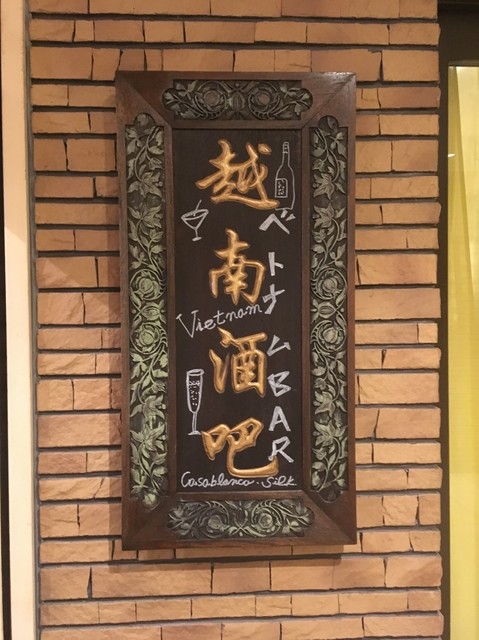 越南酒吧
ベトナムBAR
Vietnam
Casablanca・Silk